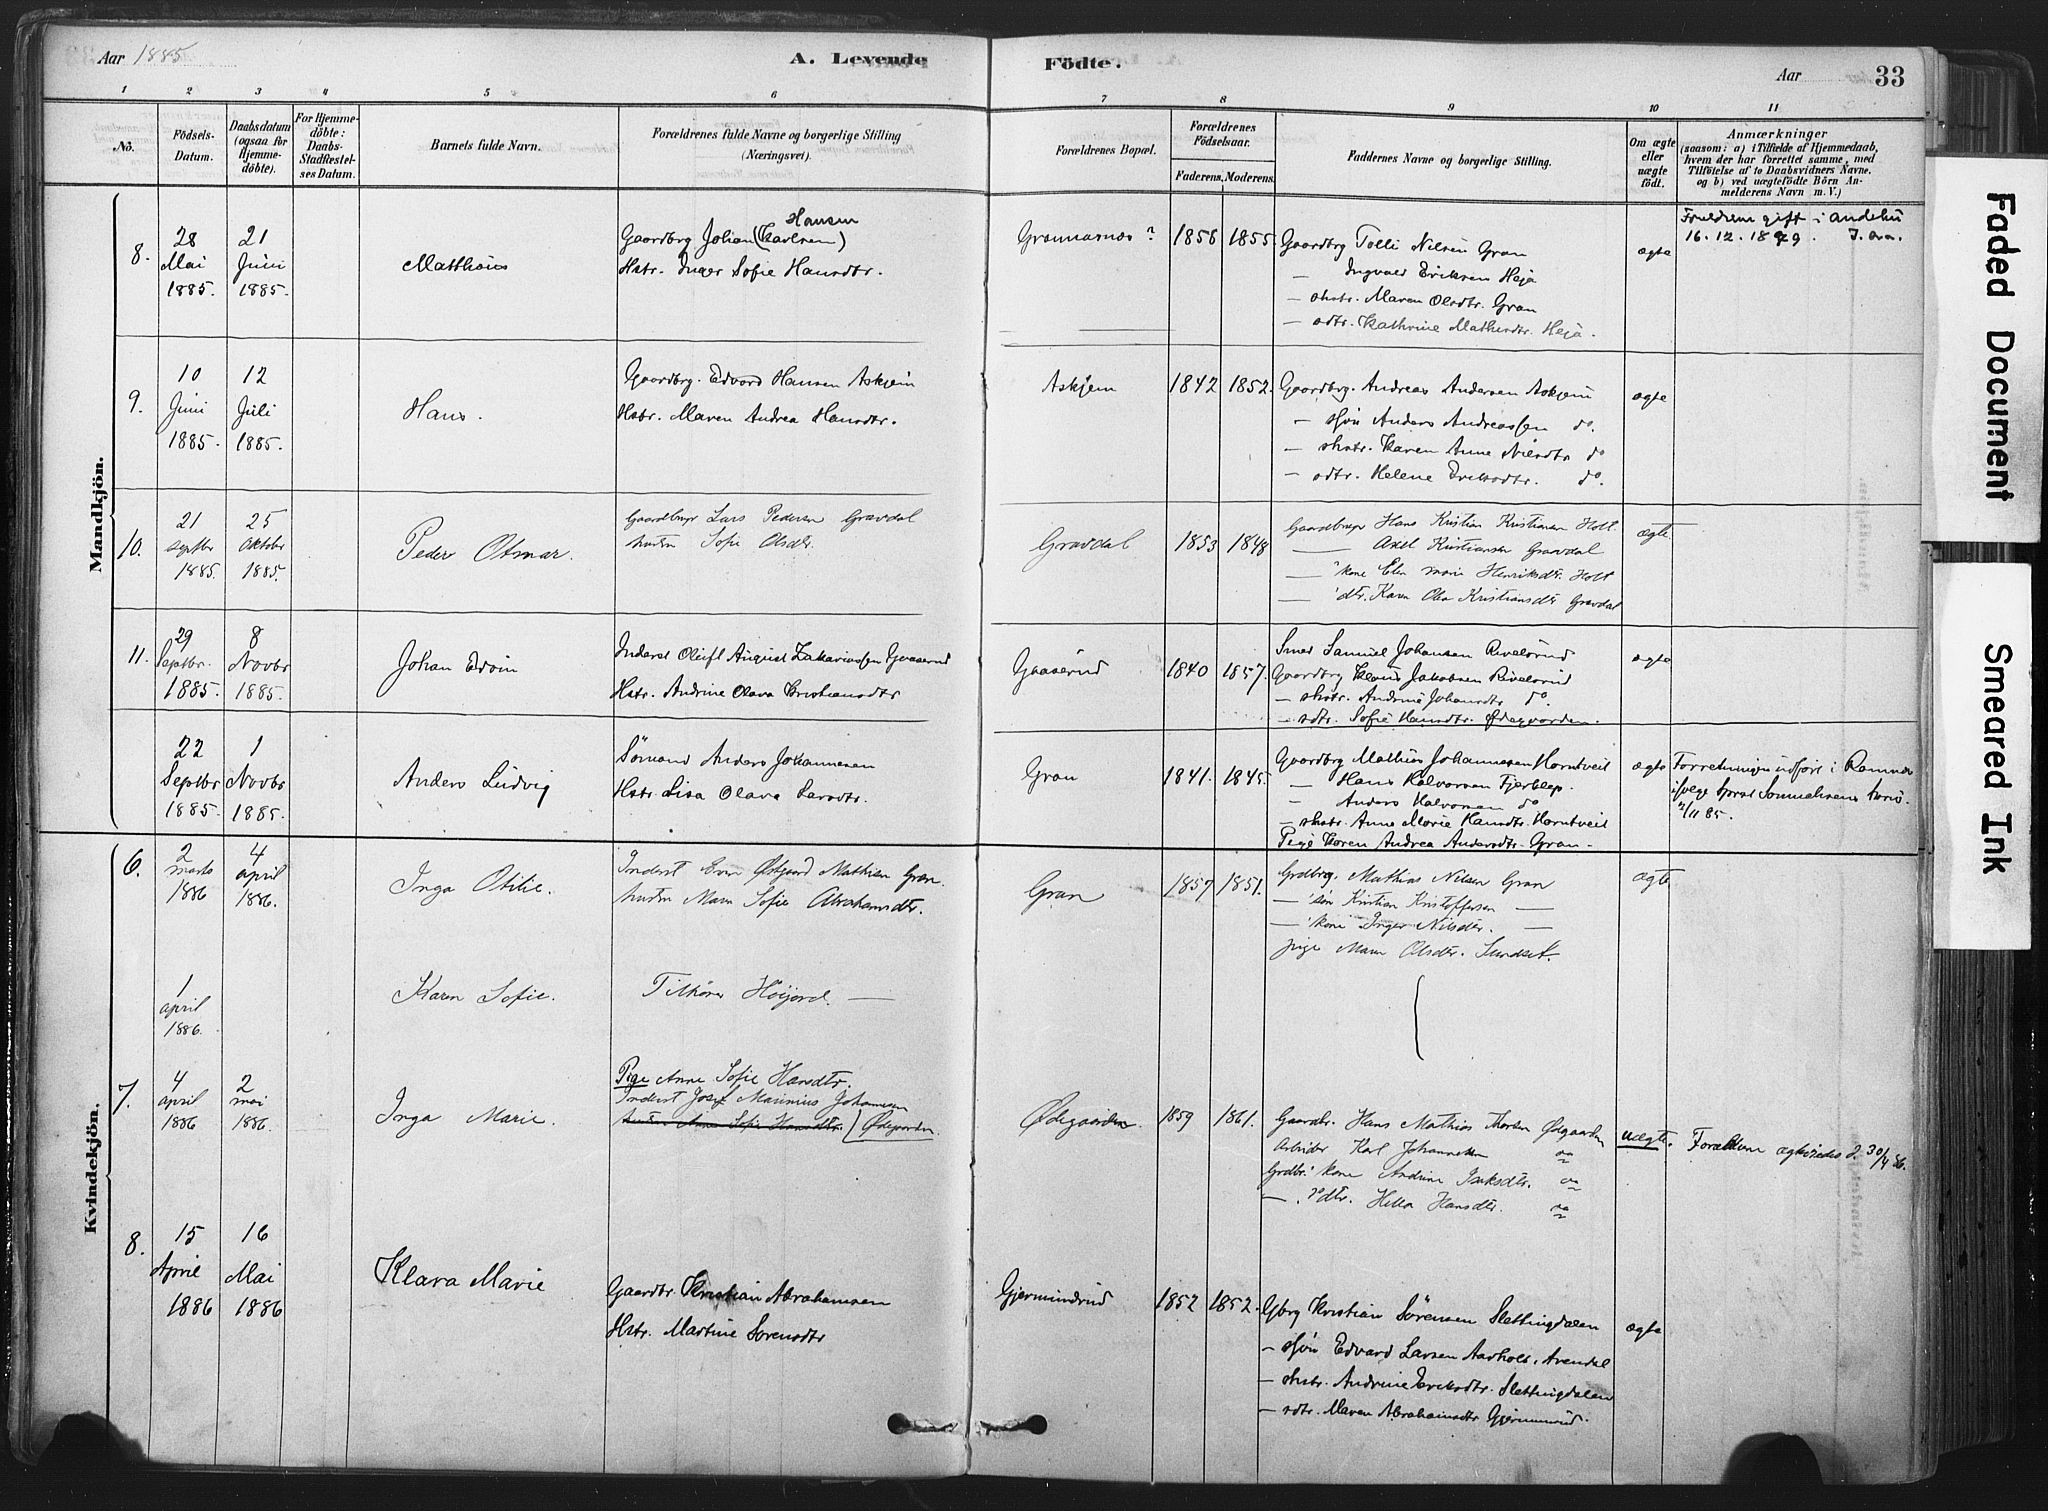 Aar 1885
A. Levende
Födte.
Aar
33
1
2
3
4
5
6
7
8
9
10
11
No.
Födsels-
Datum.
Daabsdatum
(ogsaa for
Hjemme-
döbte).
For Hjemme-
döbte:
Daabs-
Stadfæstel-
ses Datum.
Barnets fulde Navn.
Forældrenes fulde Navne og borgerlige Stilling
(Næringsvei).
Forældrenes Bopæl.
Forældrenes
Födselsaar.
Faderens. Moderens.
Faddernes Navne og borgerlige Stilling.
Om ægte
eller
uægte
födt.
Anmærkninger
(saasom: a) i Tilfælde af Hjemmedaab,
hvem der har forrettet samme, med
Tilföielse af to Daabsvidners Navne.
og b) ved uægtefödte Börn An-
melderens Navn m. V.)
Mandkjön.
8.
28
Mai
1885.
21
Juni
1885.
Matthæus
Hansen
Gaardbrg Johan (Karlsen)
Hstr. Inger Sofie Hansdtr.
1856
1855.
Gaardbrg Tolli Nilsen Gran
— Ingvald Eriksen Hejа
— shstr. Maren Olsdtr. Gran
— sdtr. Kathrine Mathisdtr. Heja.
ægte
gift i Andebu
16.12.1879.
9.
10
Juni
1885.
12
Juli
1885.
Hans.
Gaardbrg. Edvard Hansen Askjem
Hstr. Maren Andrea Hansdtr.
Askjem
1842
1852.
Gaardbrg. Andreas Andersen Askjem
— ssøn Anders Andreassen do.
— shstr. Karen Anne Nilsdtr do
— sdtr. Helene Eriksdtr. do.
ægte
10.
21
septbr
1885.
25
Oktober
1885.
Peder Otmar.
Gaardbrugr Lars Pedersen Gravdal
hustru Sofie Olsdtr.
Gravdal
1853
1848
Gaardbrugr Hans Kristian Kristiansen Holt
— Axel Kristiansen Gravdal
— 'kone Elen Marie Henriksdtr. Holt
— 'dtr. Karen Olea Kristiansdtr Gravdal
ægte
11.
29
Septbr.
1885.
8
Novbr
1885.
Johan Edvin
Inderst Oluf August Zakariassen Gaaserud
Hstr. Andrine Olava Kristiansdtr
Gaaserud
1840
1857.
Smed Samuel Johansen Rivelsrud
Gaardbrg Klaus Jakobsen Rivelsrud
— shstr. Andrine Johansdtr do.
— sdtr. Sofie Hansdtr. Ødegaarden.
ægte
22
Septbr
1885.
1
Novbr
1885.
Anders Ludvig
Sömand Anders Johannesen
Hstr. Lisa Olava Larsdtr.
Gran
1841.
1845.
Gaardbrg Mathias Johannesen Horntveit
— Hans Halvorsen Fjerklep.
— Anders Halvorsen do
— shstr. Anne Marie Hansdtr. Horntveit
Pige Karen Andrea Andersdtr. Gran.
ægte
Forretningen udført i Ramnes
2/11 85.
Kvindekjön.
6.
2
marts
1886
4
april
1886.
Inga Otilie.
Inderst Even Østgaard Mathisen Gran.
hustru Maren Sofie Abrahamsdtr.
Gran
1857
1851.
Grdbrg. Mathias Nilsen Gran
— 'søn Kristian Kristoffersen —
— 'kone Inger Nilsdtr. —
pige Maren Olsdtr. Sundset.
ægte
1
april
1886.
Karen Sofie.
Tilhører Höijord. —
7.
4
april
1886
2
mai
1886.
Inga Marie.
Pige Anne Sofie Hansdtr.
Inderst Josef Marinius Johansen
hustru Anne Sofie Hansdtr. ) Ødegaarden
Ødegaarden
1859
1861.
Gaardbr. Hans Mathias Thorsen Ødegaarden
Arbeider Karl Johannesen
Grdbr.' kone Andrine Isaksdtr.
— 'dtr. Helka Hansdtr.
uægte.
Forældrene ægteviedes d. 30/4 86.
8.
15
April
1886
16
Mai
1886
Klara Marie
Gaardbr. Kristian Abrahamsen
Hstr. Martine Sorensdtr
Gjermundrud
1852
1852.
Gbrg Kristian Sörensen Slettingdalen
— ssøn Edvard Larsen Aadholt, Arendal
— shstr. Andrine Eriksdtr. Slettingdalen
— sdtr. Maren Abrahamsdtr Gjermunrud.
ægte
Faded Document
Smeared Ink